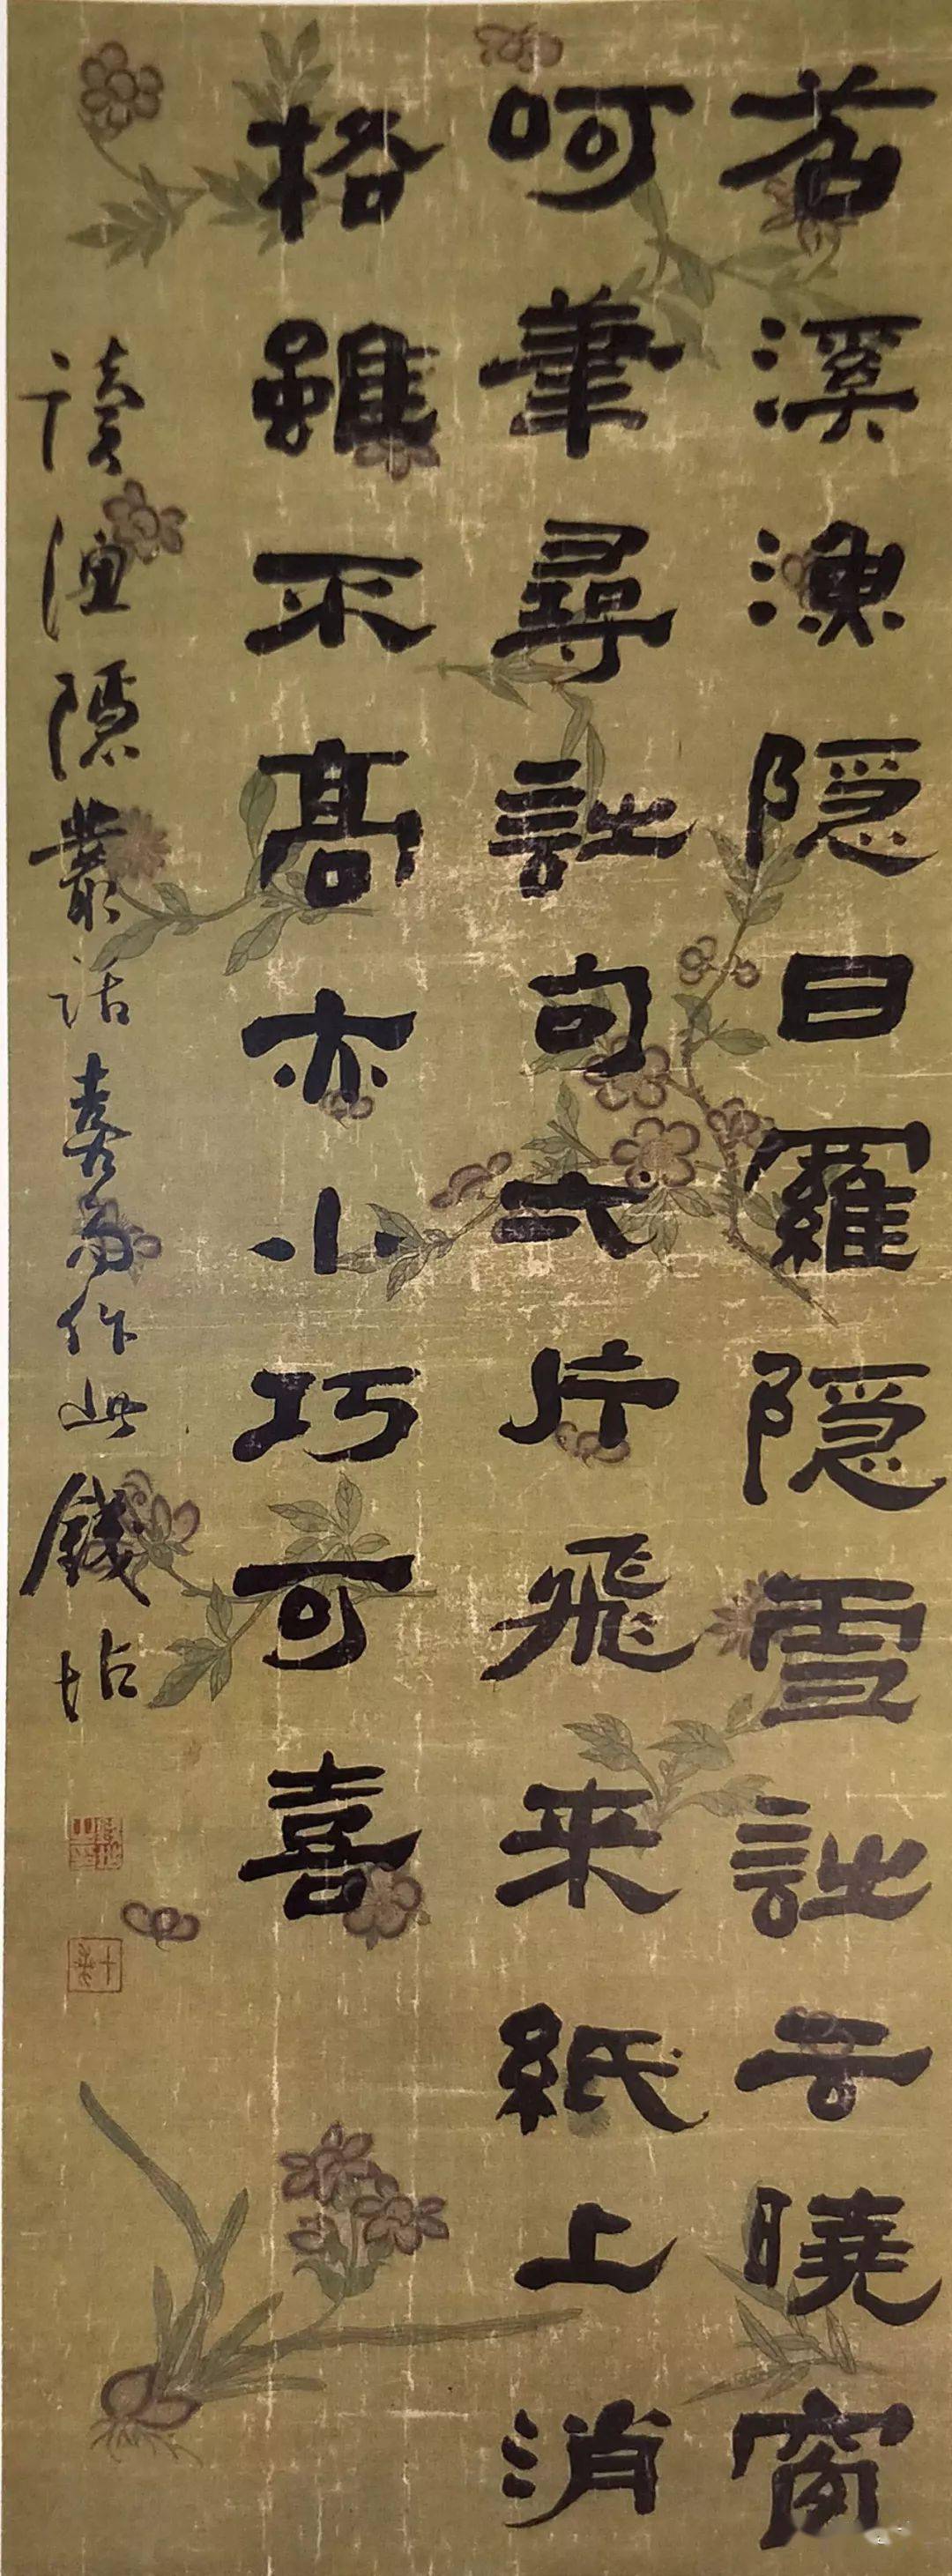 苕溪漁隱曰羅隱雪詩云曉窗
呵筆尋詩句一片飛來紙上消
格雖不高亦小巧可喜
讀漁隱叢話書為作此錢坫